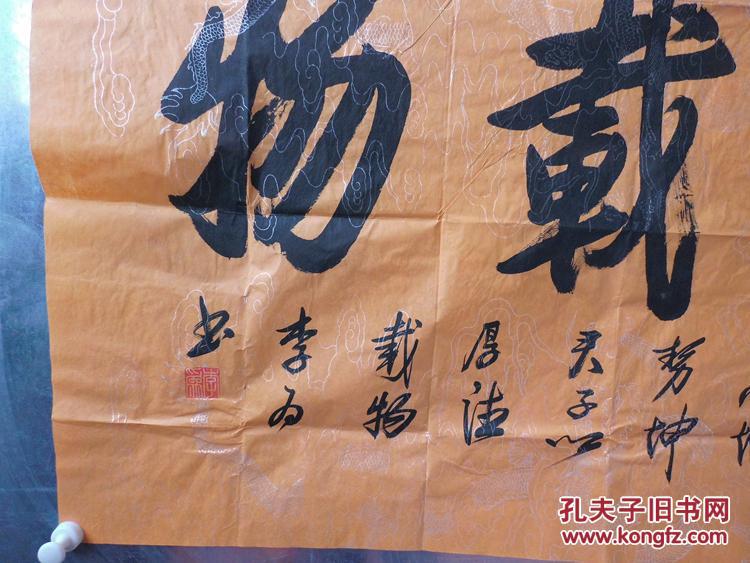 載物
势坤
君子以
厚德
載物
李为
书
孔夫子旧书网
www.kongfz.com